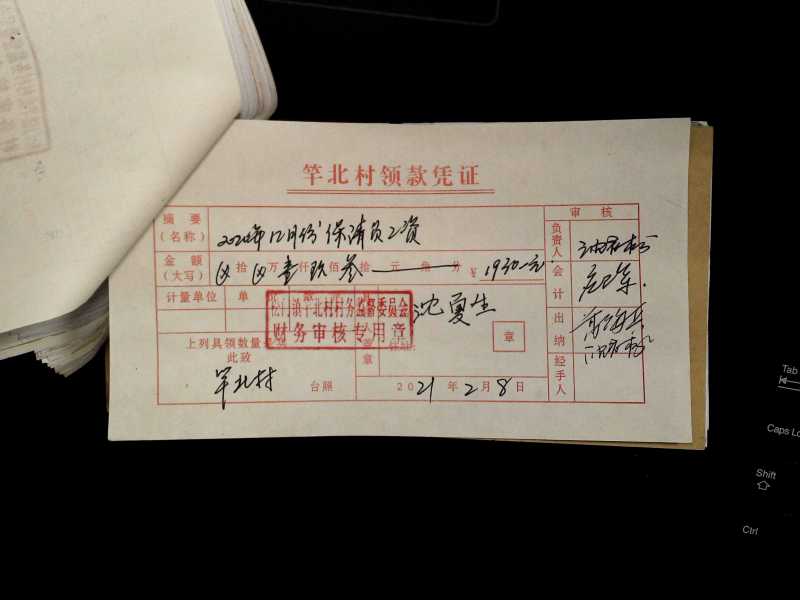 竿北村领款凭证
摘要
(名称)
2020年12月份保洁员工资
审核
金额
(大写)
拾 万壹仟玖佰叁拾 元 角 分 ¥1930元
负责人
会计
出纳
经手人
计量单位 单
松门镇竿北村村务监督委员会
财务审核专用章
沈夏生
章
盖章
上列具领数量
此致
竿北村 台照
2021年2月8日
Tab
Caps Lo
Shift
Ctrl